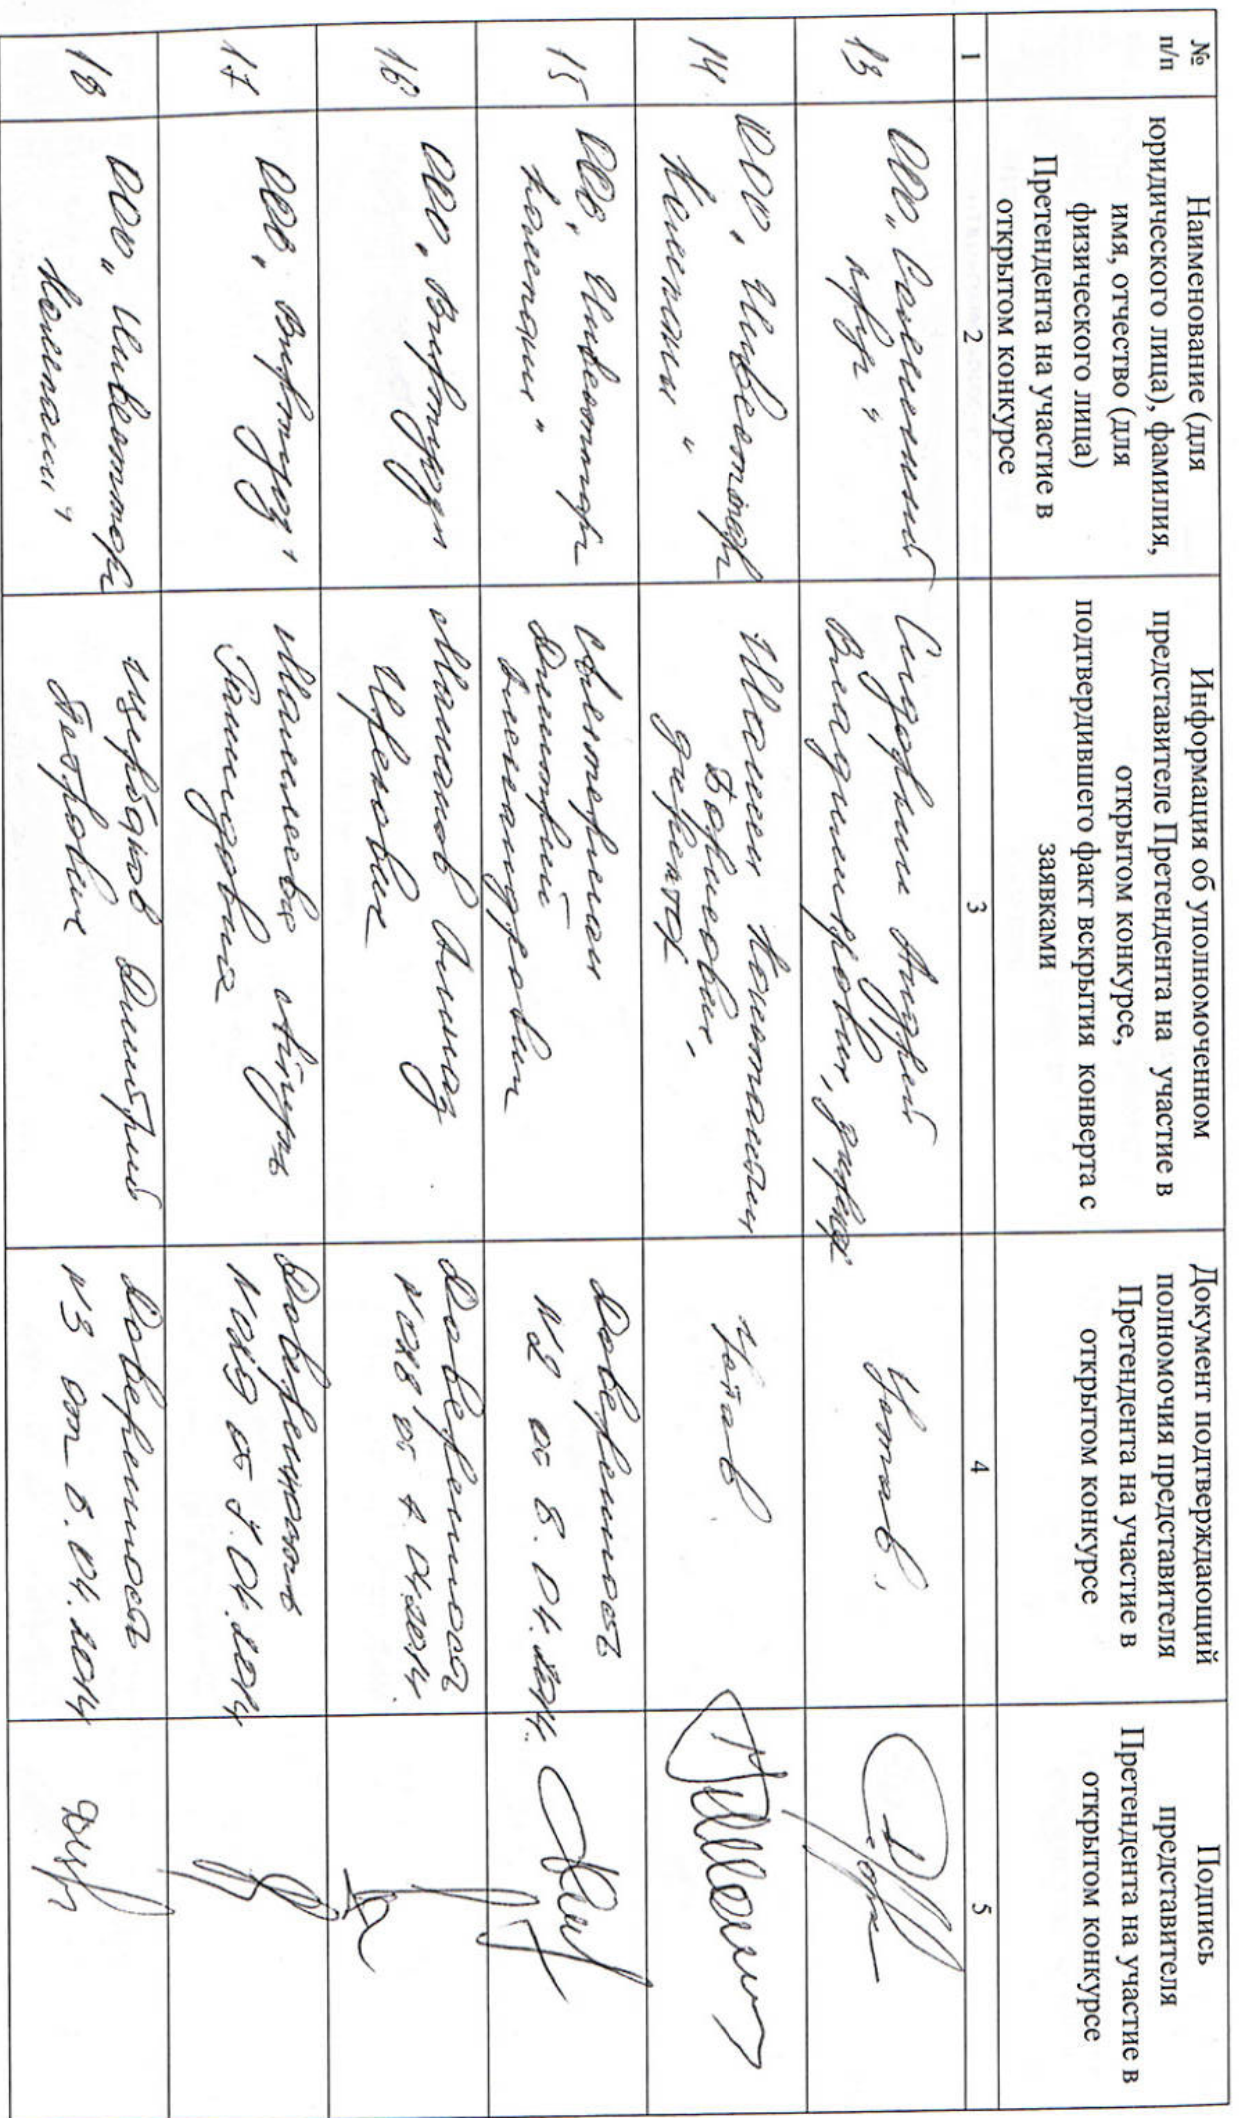 №
п/п
Наименование (для
юридического лица), фамилия,
имя, отчество (для
физического лица)
Претендента на участие в
открытом конкурсе
Информация об уполномоченном
представителе Претендента на участие в
открытом конкурсе,
подтвердившего факт вскрытия конверта с
заявками
Документ подтверждающий
полномочия представителя
Претендента на участие в
открытом конкурсе
Подпись
представителя
Претендента на участие в
открытом конкурсе
1
2
3
4
5
13
ООО „Солнечный
круг"
Сидоркин Андрей
Владимирович, директор
Устав.
14.
ООО „Инвестторг
Компани"
Ивошин Константин
Борисович,
директор
Устав.
15
ООО „Инвестторг
Компани"
Дмитрий
Александрович
Доверенность
№2 от 8.04.2014.
16
ООО „Вифтрейд"
Ирекович
Доверенность
№028 от 7.04.2014.
17
ООО „Вифтрейд"
Доверенность
№029 от 7.04.2014
18
ООО „Инвестторг
Компани"
Щербаков Дмитрий
Петрович
Доверенность
№3 от 8.04.2014